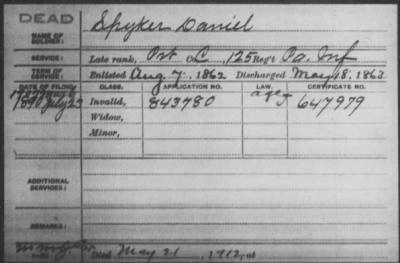 DEAD
NAME OF SOLDIER: Spyker Daniel
SERVICE: Late rank, Pvt Co. C, 125 Reg't Pa. Inf
TERM OF SERVICE: Enlisted Aug 7, 1862 Discharged May 18, 1863
DATE OF FILING. CLASS. APPLICATION NO. LAW. CERTIFICATE NO.
1890 July 22 Invalid, 843780 J 647979
Widow,
Minor,
ADDITIONAL SERVICES:
REMARKS:
Died May 21, 1912, at